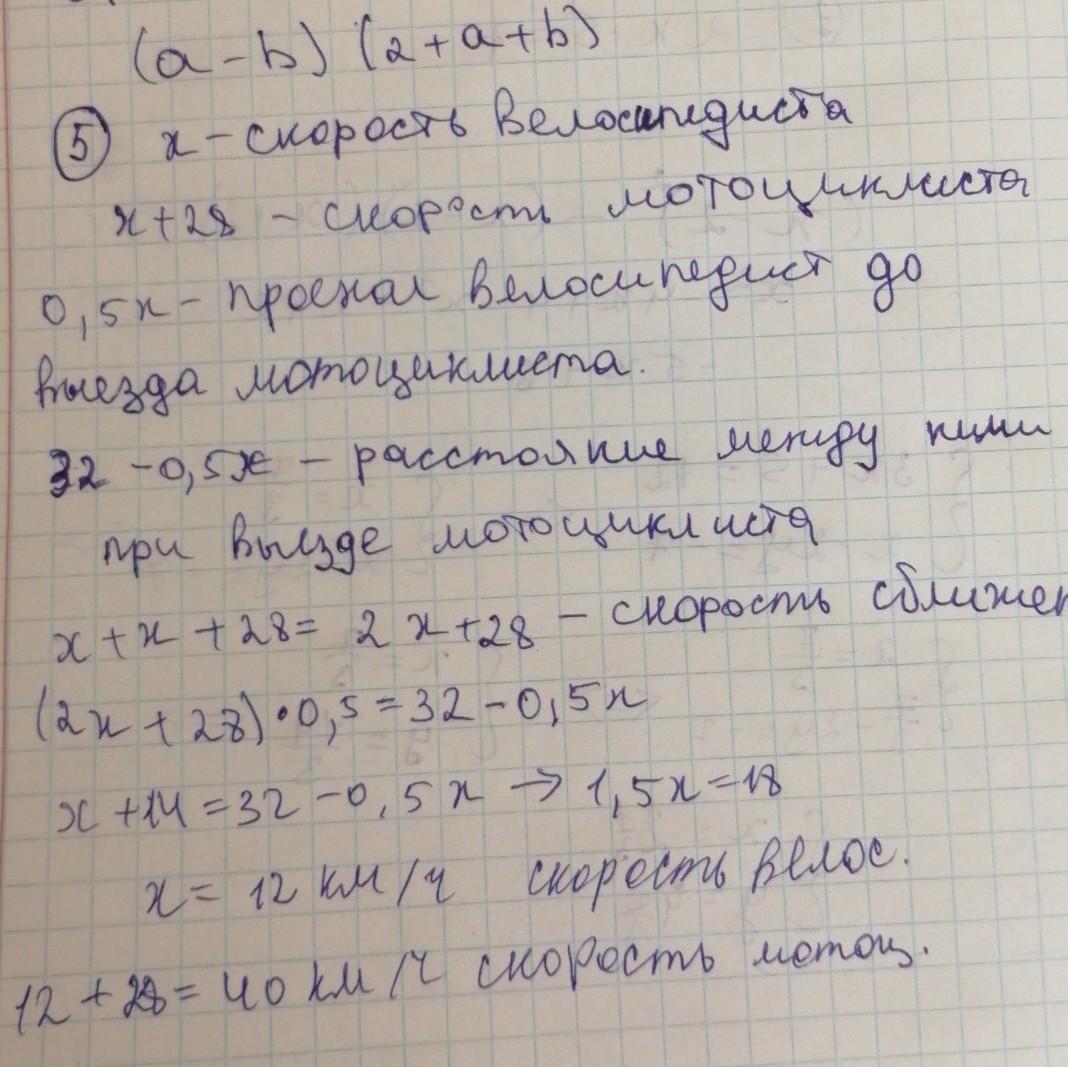 (a-b) (2+a+b)
⑤ x - скорость велосипедиста
x+28 - скорость мотоциклиста
0,5x - проехал велосипедист до
выезда мотоциклиста.
32 -0,5x - расстояние между ними
при выезде мотоциклиста
x+x+28= 2x+28 - скорость сближен
(2x+28)•0,5=32-0,5x
x+14=32-0,5x → 1,5x=18
x= 12 км/ч скорость велос.
12+28= 40 км/ч скорость мотоц.